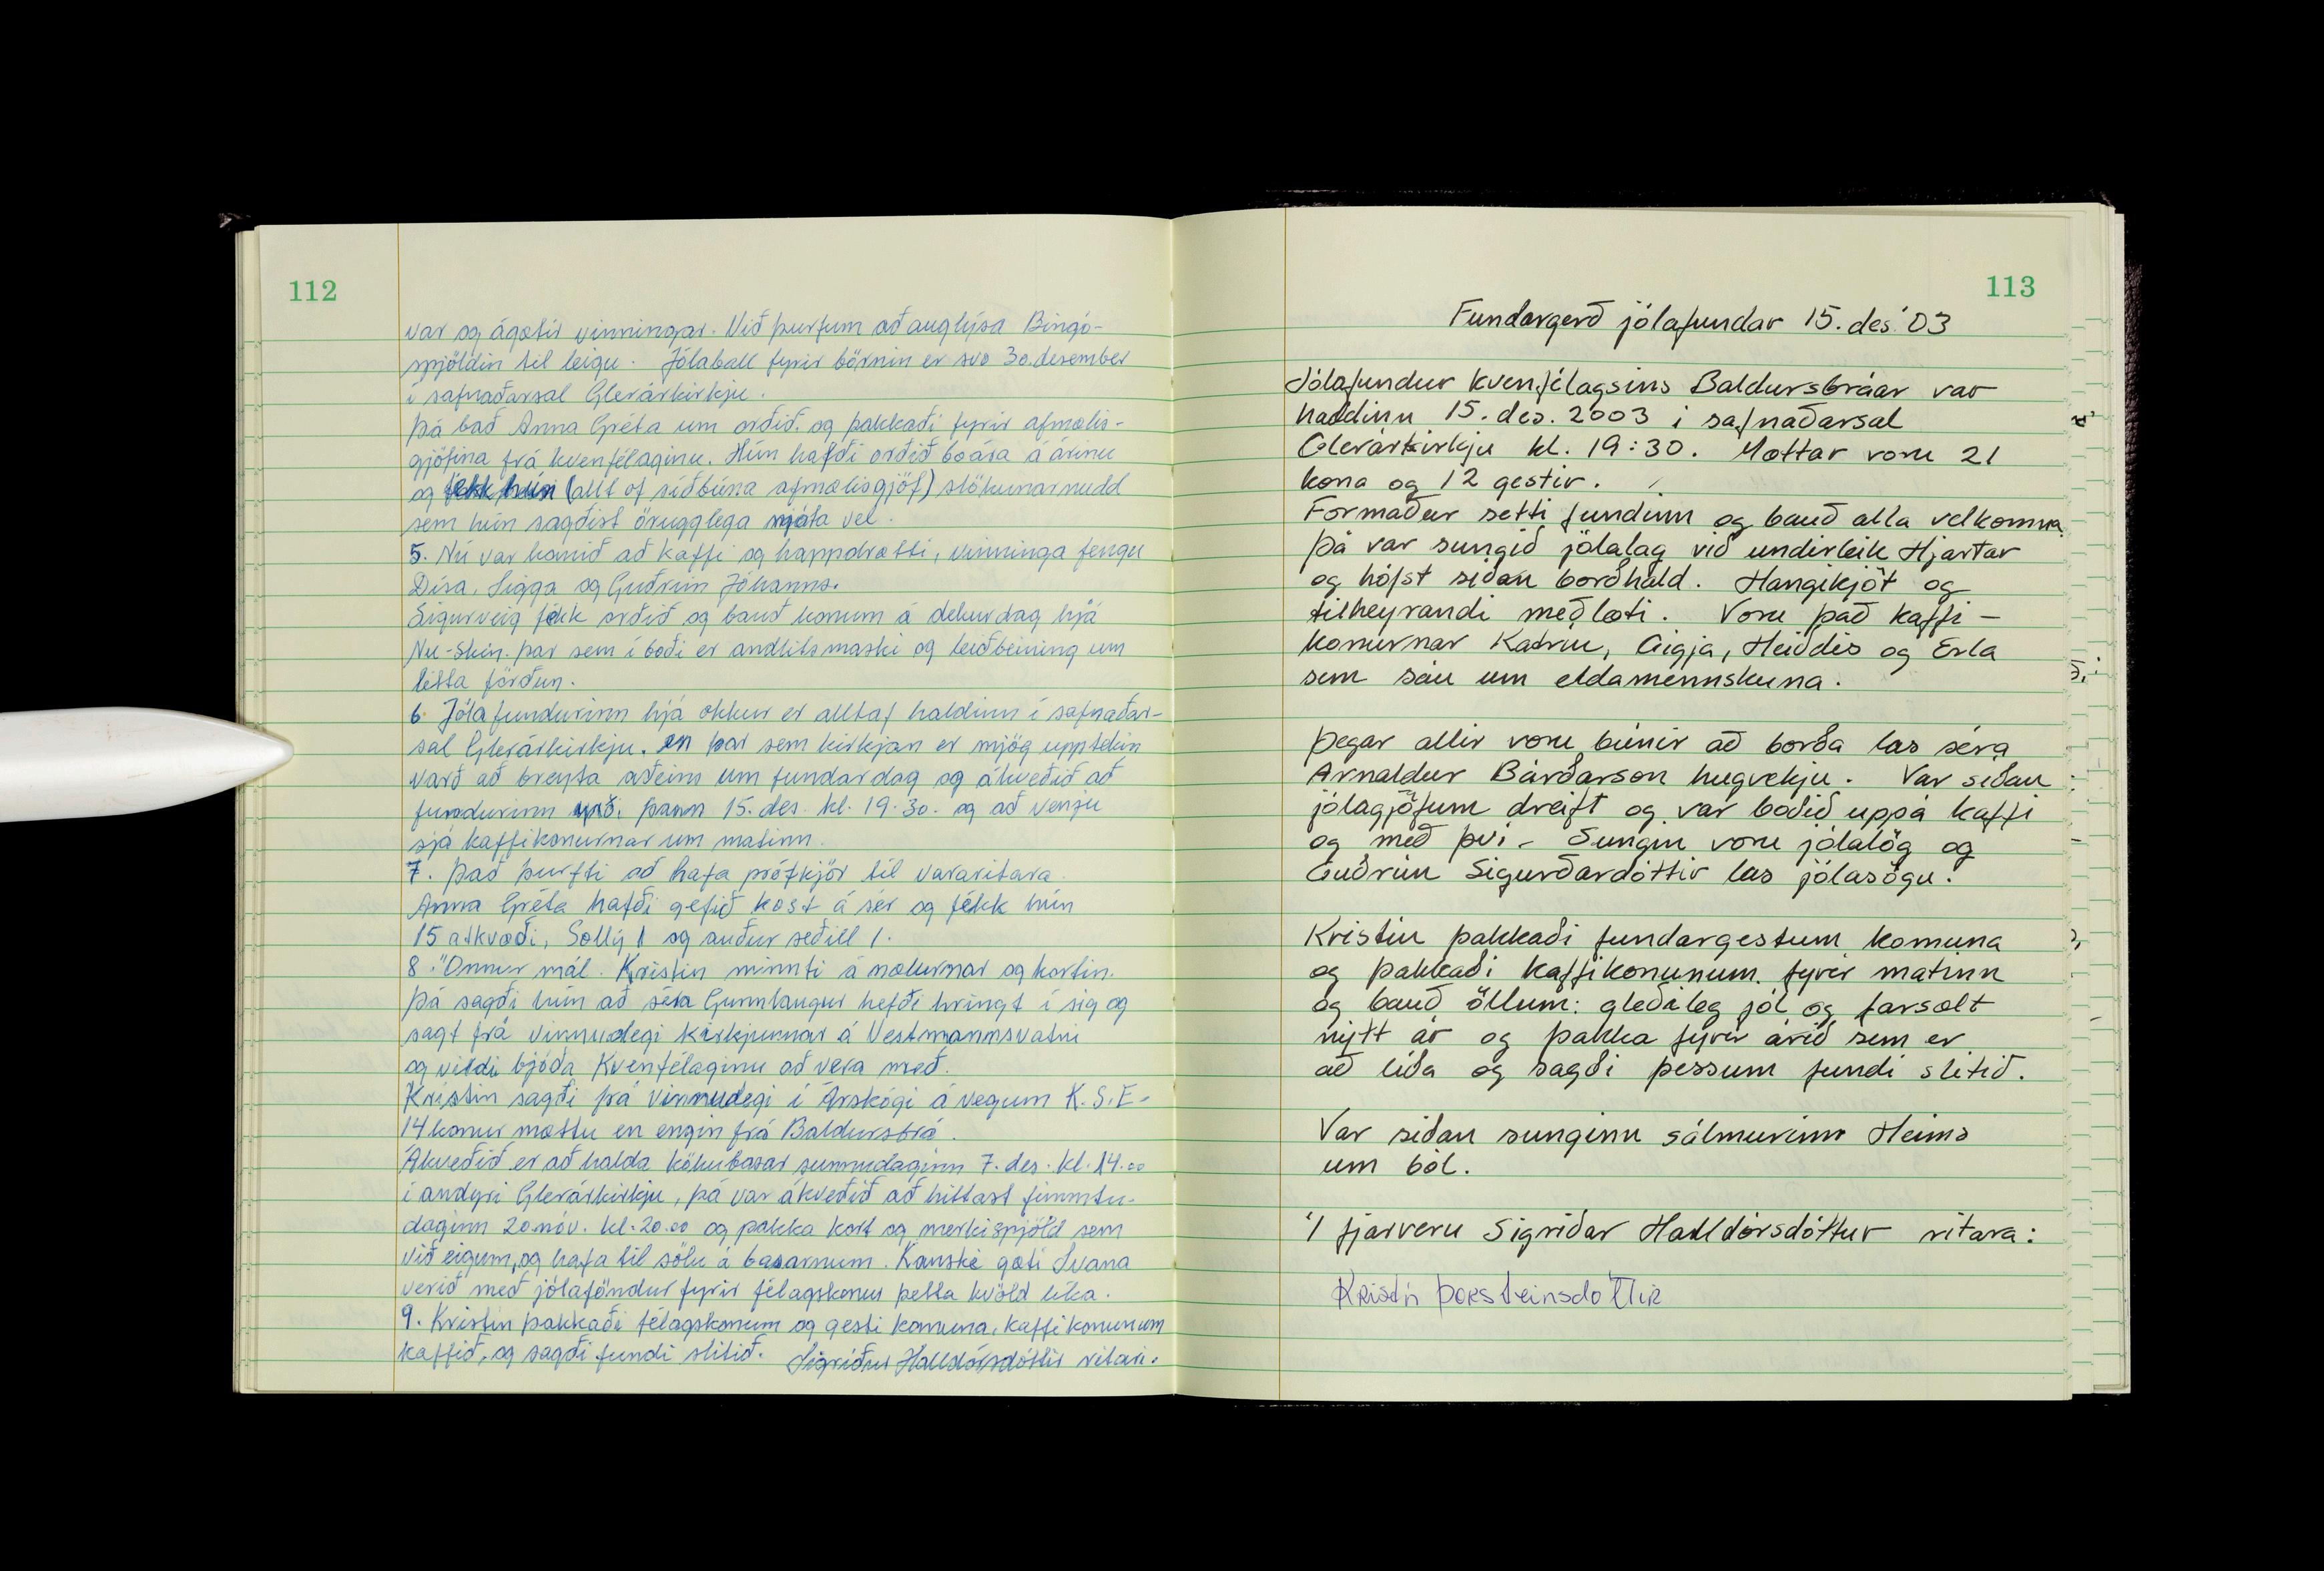 112
var og ágætir vinningar. Við þurfum að auglýsa Bingó-
spjöldin til leigu. Jólaball fyrir börnin er svo 30. desember
í safnaðarsal Glerárkirkju.
Þá bað Anna Gréta um orðið. og þakkaði fyrir afmælis-
gjöfina frá kvenfélaginu. Hún hafði orðið 60 ára á árinu
og fékk hún (allt of síðbúna afmælisgjöf) slökunarnudd
sem hún sagðist örugglega njóta vel.
5. Nú var komið að kaffi og happdrætti, vinninga fengu
Dísa, Sigga og Guðrún Jóhanns.
Sigurveig fékk orðið og bauð konum á dekurdag hjá
Nu-Skin. þar sem í boði er andlitsmaski og leiðbeining um
létta förðun.
6. Jólafundurinn hjá okkur er alltaf haldinn í safnaðar-
sal Glerárkirkju. en þar sem kirkjan er mjög upptekin
varð að breyta aðeins um fundardag og ákveðið að
fundurinn yrði þann 15. des. kl. 19.30. og að venju
sjá kaffikonurnar um matinn.
7. Það þurfti að hafa prófkjör til vararitara.
Anna Gréta hafði gefið kost á sér og fékk hún
15 atkvæði, Sollý 1 og auður seðill 1.
8. Önnur mál. Kristín minnti á nælurnar og kortin.
Þá sagði hún að séra Gunnlaugur hefði hringt í sig og
sagt frá vinnudegi kirkjunnar á Vestmannsvatni
og vildi bjóða Kvenfélaginu að vera með.
Kristín sagði frá vinnudegi í Árskógi á vegum K.S.E-
14 konur mættu en engin frá Baldursbrá.
Ákveðið er að halda kökubasar sunnudaginn 7. des. kl. 14.00
í andyri Glerárkirkju, þá var ákveðið að hittast fimmtu-
daginn 20. nóv. kl. 20.00 og pakka kort og merkispjöld sem
við eigum, og hafa til sölu á basarnum. Kanske gæti Svana
verið með jólaföndur fyrir félagskonur þetta kvöld líka.
9. Kristín þakkaði félagskonum og gesti komuna, kaffikonunum
kaffið, og sagði fundi slitið. Sigríður Halldórsdóttir ritari.
113
Fundargerð jólafundar 15. des '03
Jólafundur kvenfélagsins Baldursbráar var
haldinn 15. des. 2003 í safnaðarsal
Glerárkirkju kl. 19:30. Mættar voru 21
kona og 12 gestir.
Formaður setti fundinn og bauð alla velkomna
Þá var sungið jólalag við undirleik Hjartar
og hófst síðan borðhald. Hangikjöt og
tilheyrandi meðlæti. Voru það kaffi-
konurnar Katrín, Gígja, Heiðdís og Erla
sem sáu um eldamennskuna.
Þegar allir voru búnir að borða las séra
Arnaldur Bárðarson hugvekju. Var síðan
jólagjöfum dreift og var boðið uppá kaffi
og með því. Sungin voru jólalög og
Guðrún Sigurðardóttir las jólasögu.
Kristín þakkaði fundargestum komuna
og þakkaði kaffikonunum fyrir matinn
og bauð öllum: gleðileg jól og farsælt
nýtt ár og þakka fyrir árið sem er
að líða og sagði þessum fundi slitið.
Var síðan sunginn sálmurinn Heims
um ból.
Í fjarveru Sigríðar Halldórsdóttur ritara:
Kristín Þorsteinsdóttir